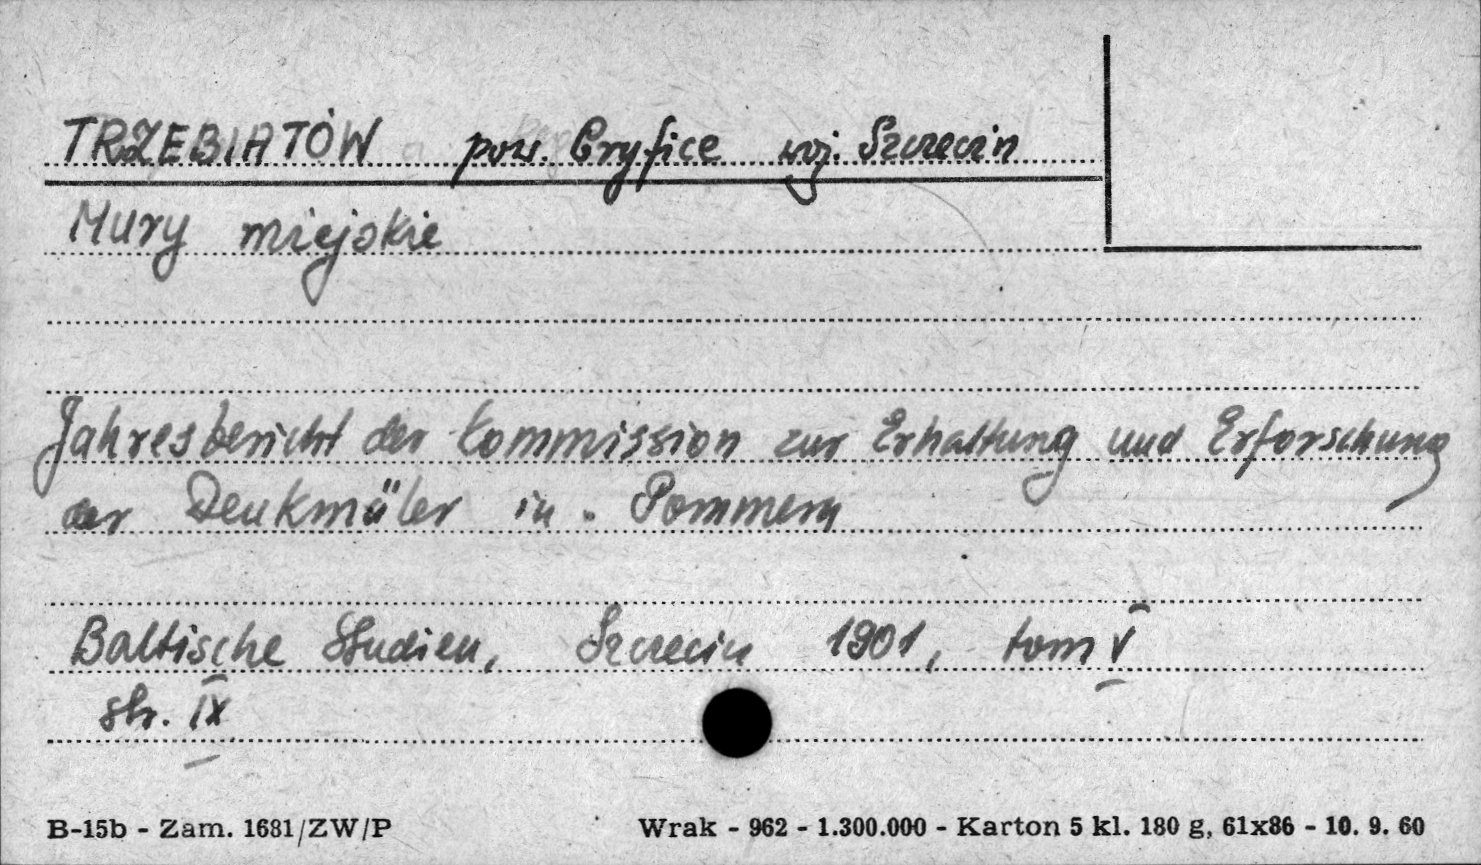 TRZEBIATÓW pow. Gryfice woj. Szczecin
Mury miejskie
Jahresbericht der Kommission zur Erhaltung und Erforschung
der Denkmäler in Pommern
Baltische Studien, Szczecin 1901, tom V
str. IX
B-15b - Zam. 1681/ZW/P
Wrak - 962 - 1.300.000 - Karton 5 kl. 180 g, 61x86 - 10. 9. 60